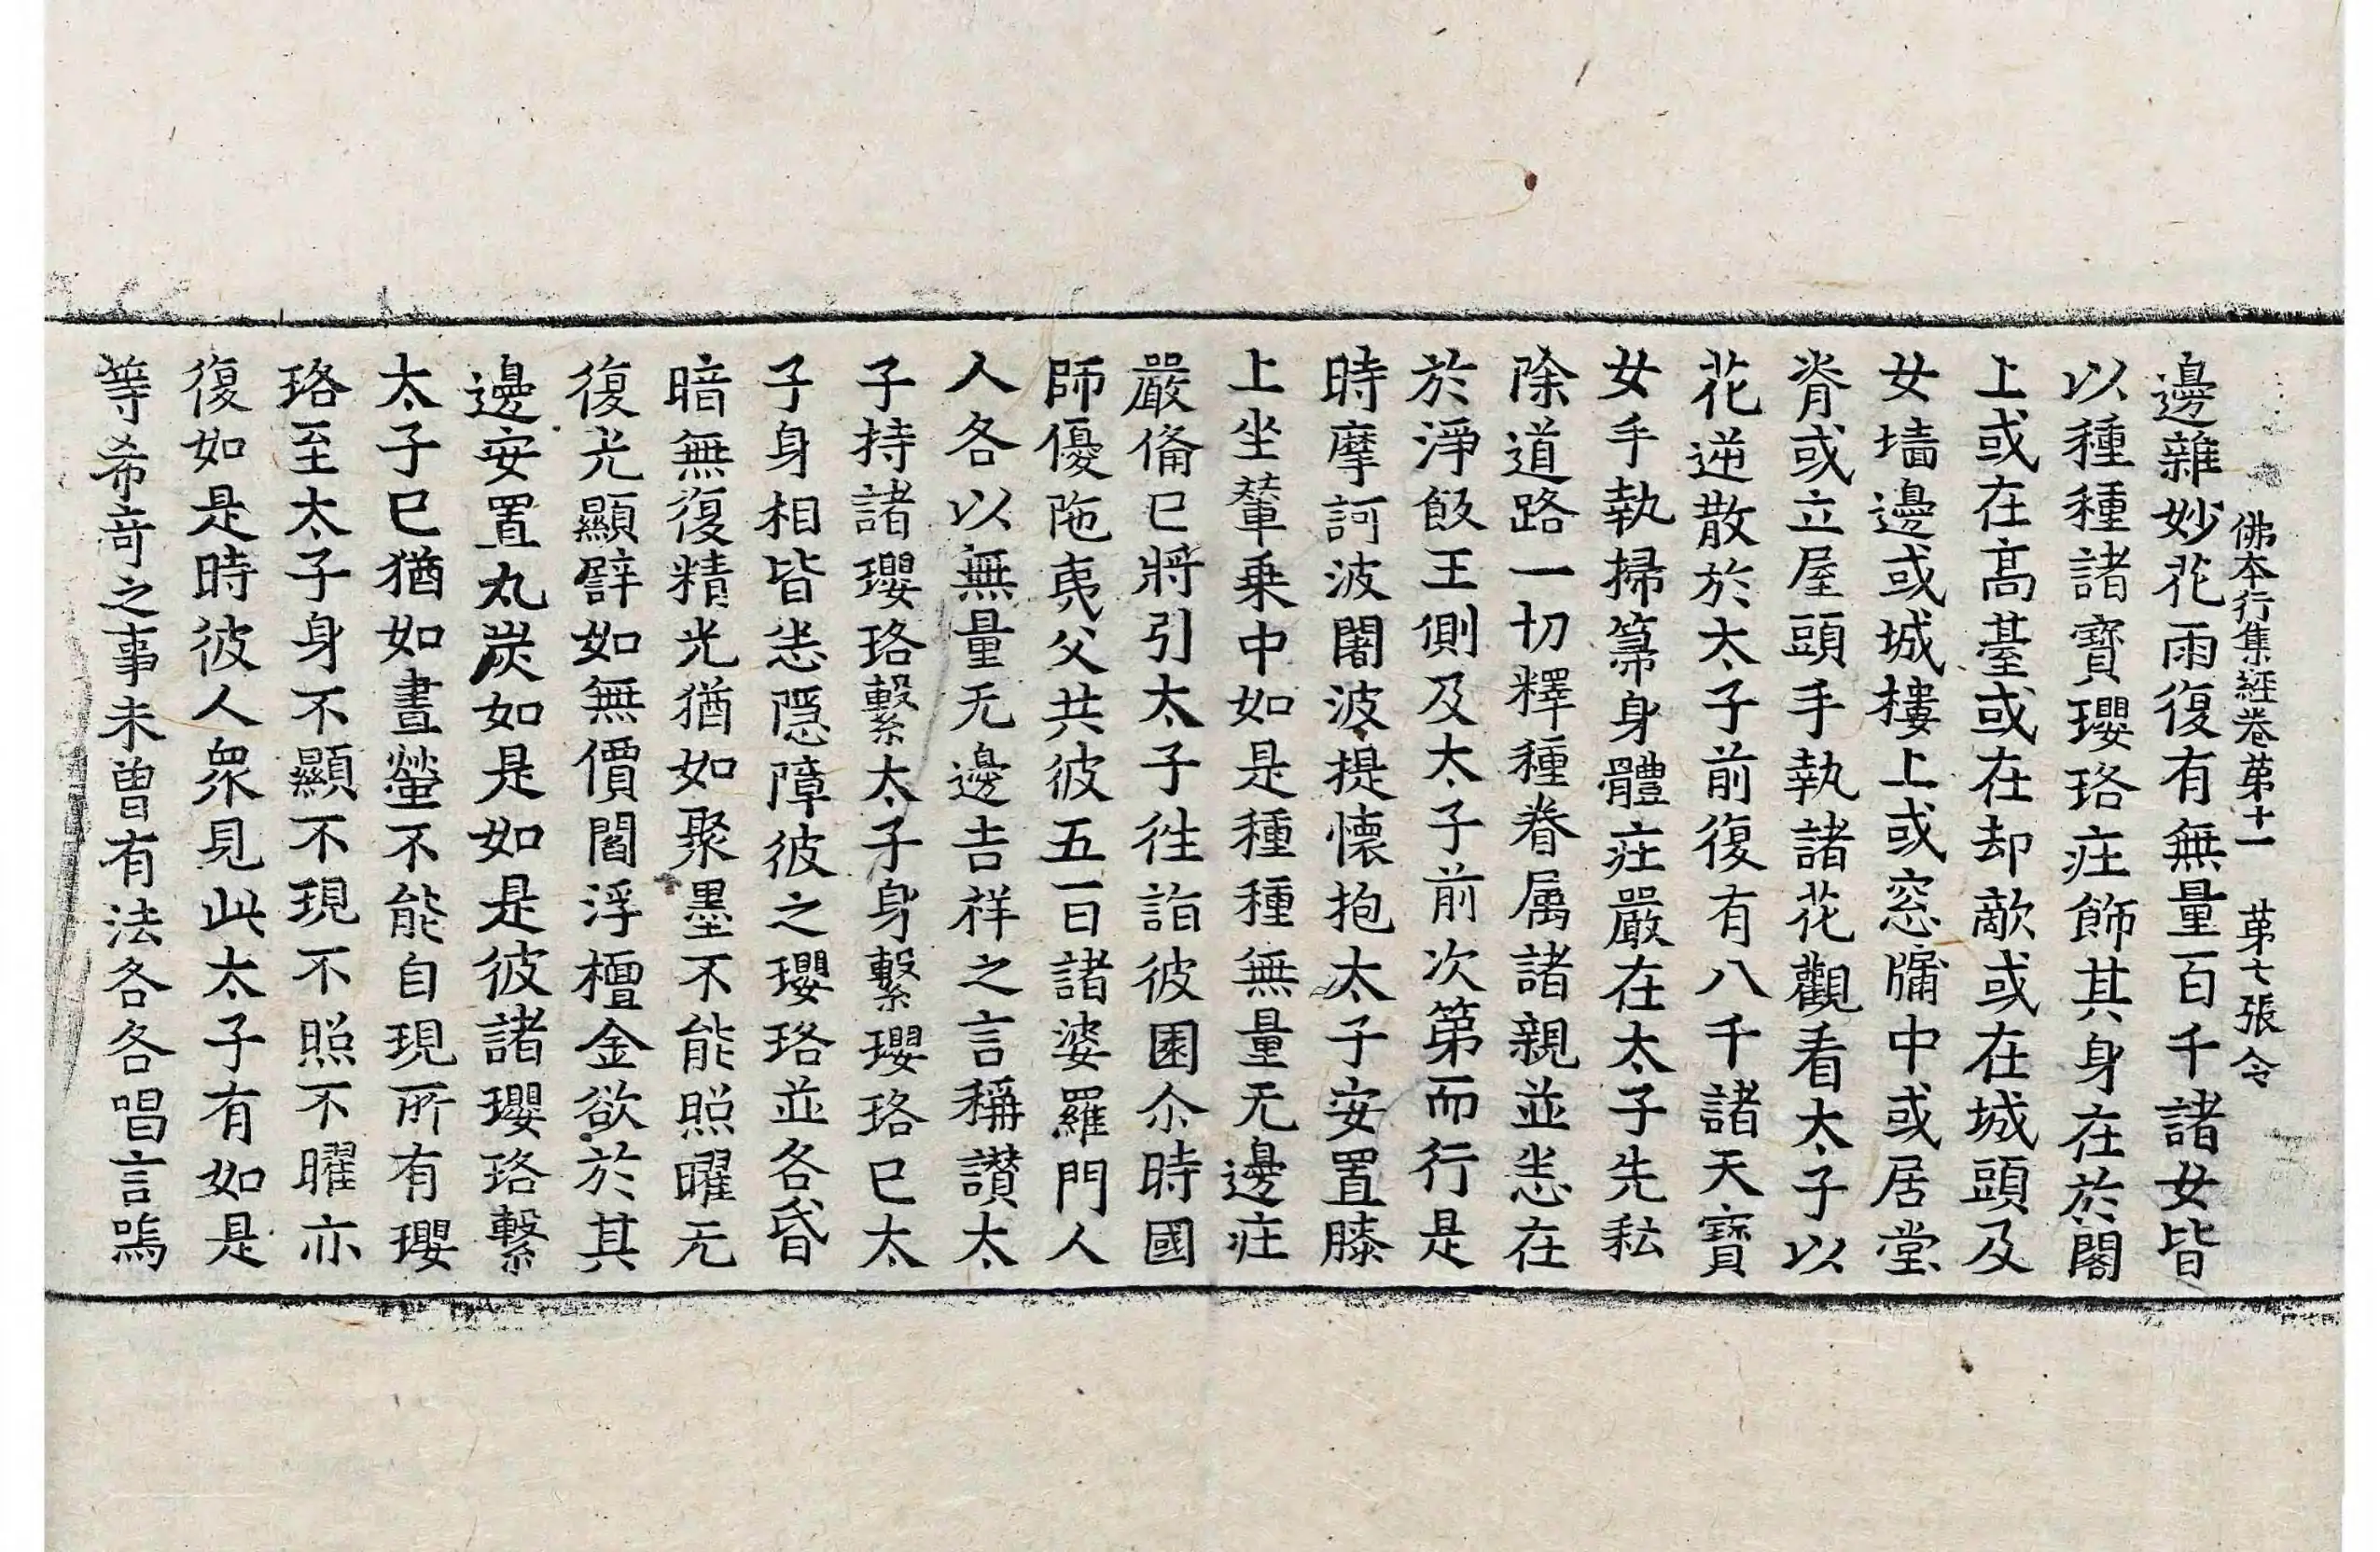 佛本行集經卷第十一 第七張 令
邊雜妙花雨復有無量百千諸女皆
以種種諸寶瓔珞庄飾其身在於閣
上或在高臺或在却敵或在城頭及
女墻邊或城樓上或窓牖中或居堂
脊或立屋頭手執諸花觀看太子以
花逆散於太子前復有八千諸天寶
女手執掃箒身體庄嚴在太子先耘
除道路一切釋種眷属諸親並悉在
於淨飯王側及太子前次第而行是
時摩訶波闍波提懷抱太子安置膝
上坐輦乗中如是種種無量无邊庄
嚴俻已將引太子徃詣彼園尒時國
師優陁夷父共彼五百諸婆羅門人
人各以無量无邊吉祥之言稱讃太
子持諸瓔珞繫太子身繫瓔珞已太
子身相皆悉隱障彼之瓔珞並各昏
暗無復精光猶如聚墨不能照曜无
復光顯譬如無價閻浮檀金欲於其
邊安置丸炭如是如是彼諸瓔珞繫
太子已猶如晝螢不能自現所有瓔
珞至太子身不顯不現不照不曜亦
復如是時彼人衆見此太子有如是
等希奇之事未曾有法各各唱言嗚